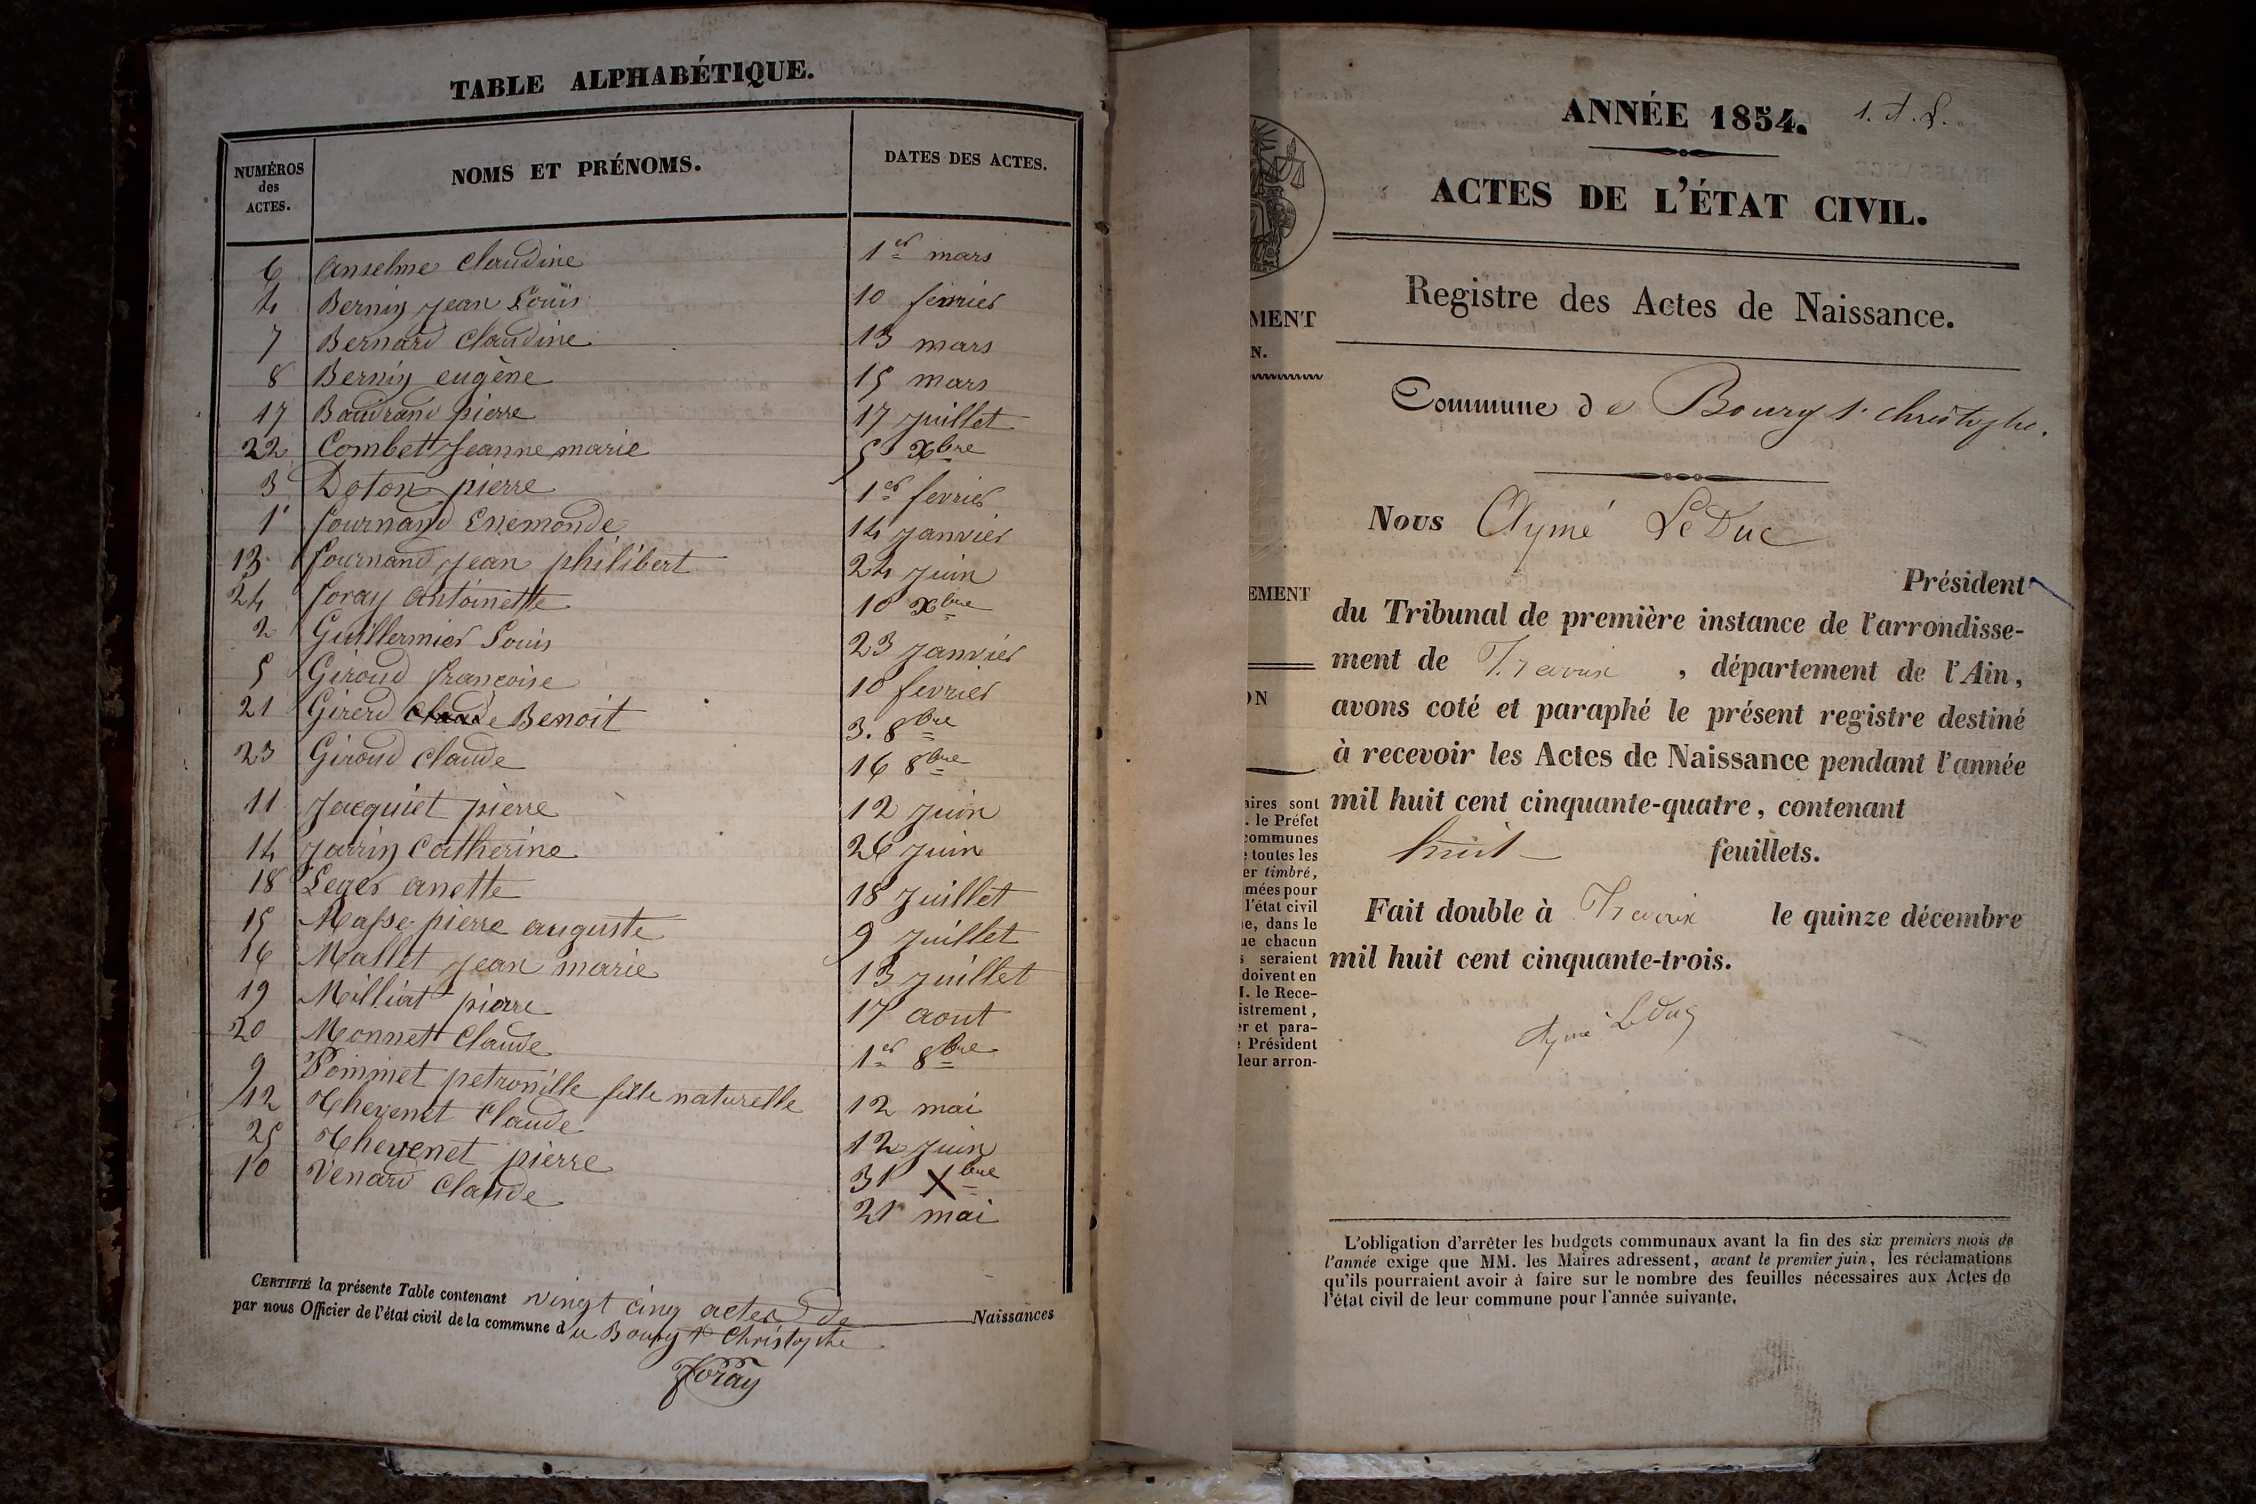 TABLE ALPHABÉTIQUE.
NUMÉROS des ACTES. NOMS ET PRÉNOMS. DATES DES ACTES.
6 Anselme Claudine 1er mars
4 Bernin Jean Louis 10 fevrier
7 Bernard Claudine 13 mars
8 Bernin eugène 15 mars
17 Baudrand pierre 17 juillet
22 Combet Jeanne marie 5 Xbre
3 Doton pierre 1er fevrier
1 fournand Enemonde 14 janvier
13 fournand jean philibert 24 juin
24 foray antoinette 10 Xbre
2 Guillermier Louis 23 janvier
5 Giroud françoise 10 fevrier
21 Girerd Benoit 3. 8bre
23 Giroud Claude 16 8bre
11 Jacquiet pierre 12 juin
14 jarrin Catherine 26 juin
18 Leger anette 18 juillet
15 Masse pierre auguste 9 juillet
16 Mallet jean marie 13 juillet
19 Milliat pierre 17 aout
20 Monnet Claude 1er 8bre
9 Pommet petronille fille naturelle 12 mai
12 Thevenet Claude 12 juin
25 Thevenet pierre 31 Xbre
10 Venard Claude 21 mai
CERTIFIÉ la présente Table contenant vingt cinq actes de Naissances
par nous Officier de l'état civil de la commune d u Bourg St Christophe
Foray
MENT
N.
EMENT
ON
aires sont
. le Préfet
communes
e toutes les
er timbré,
mées pour
l'état civil
e, dans le
ue chacun
s seraient
doivent en
M. le Rece-
istrement,
er et para-
e Président
leur arron-
ANNÉE 1854.
ACTES DE L'ÉTAT CIVIL.
Registre des Actes de Naissance.
Commune de Bourg St Christophe.
Nous Aymé LeDuc
Président
du Tribunal de première instance de l'arrondisse-
ment de Trevoux, département de l'Ain,
avons coté et paraphé le présent registre destiné
à recevoir les Actes de Naissance pendant l'année
mil huit cent cinquante-quatre, contenant
huit feuillets.
Fait double à Trevoux le quinze décembre
mil huit cent cinquante-trois.
Aymé LeDuc
L'obligation d'arrêter les budgets communaux avant la fin des six premiers mois de
l'année exige que MM. les Maires adressent, avant le premier juin, les réclamations
qu'ils pourraient avoir à faire sur le nombre des feuilles nécessaires aux Actes de
l'état civil de leur commune pour l'année suivante.